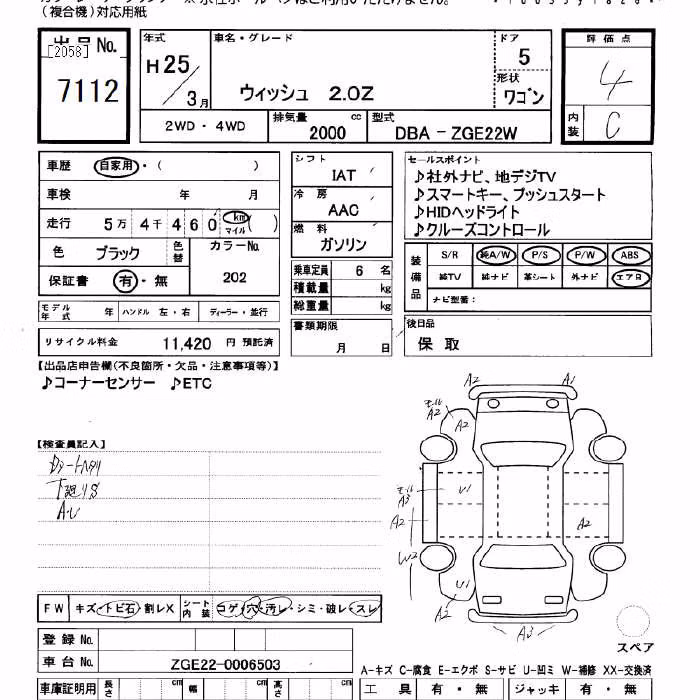 (複合機)対応用紙
出品No.
[2058]
7112
年式
H25/3月
車名・グレード
ウィッシュ 2.0Z
ドア
5
形状
ワゴン
評価点
4
内装
C
2WD・4WD
排気量
2000 cc
型式
DBA-ZGE22W
車歴 自家用・( )
車検 年 月
走行 5万4千460 km マイル ( )
色 ブラック 色替
カラーNo.
202
保証書 有・無
モデル年式 年 ハンドル 左・右 ディーラー・並行
リサイクル料金 11,420 円 預託済
シフト
IAT
冷房
AAC
燃料
ガソリン
乗車定員 6 名
積載量 kg
総重量 kg
書類期限
月 日
セールスポイント
♪社外ナビ、地デジTV
♪スマートキー、プッシュスタート
♪HIDヘッドライト
♪クルーズコントロール
装備品
S/R 純A/W P/S P/W ABS
純TV 純ナビ 革シート 外ナビ エアB
ナビ型番:
後日品
保 取
【出品店申告欄(不良箇所・欠品・注意事項等)】
♪コーナーセンサー ♪ETC
【検査員記入】
下廻りS
A2 A1
モール A2
A2
モール A3
U1
A2
A2
W2
U1
A2
A3
スペア
FW キズ・トビ石・割レX シート内装 コゲ・穴・汚レ・シミ・破レ・スレ
登録No.
車台No. ZGE22-0006503
A-キズ C-腐食 E-エクボ S-サビ U-凹ミ W-補修 XX-交換済
車庫証明用 長さ cm 幅 cm 高さ cm
工具 有・無 ジャッキ 有・無